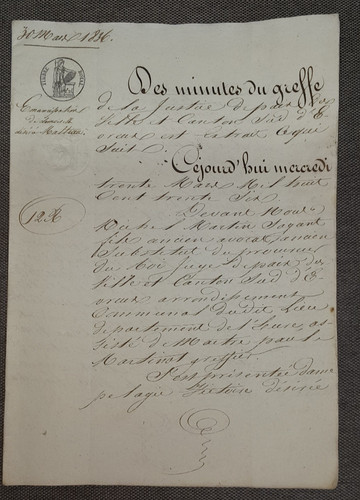 30 Mars 1836.
Emancipation
Des minutes du greffe
de la Justice de paix des
Ville et Canton Sud d'E
vreux est extrait ce qui
suit.
Cejourd'hui mercredi
trente Mars Mil huit
Cent trente Six
Devant Nous
Michel Martin
ancien avocat ancien
Substitut du procureur
du Roi Juge de paix des
Ville et Canton Sud d'E
vreux arrondissement
Communal du dit Lieu
département de l'Eure, as
sisté de Maître
Martinat greffier.
S'est présentée dame
pelagie Victoire désirée